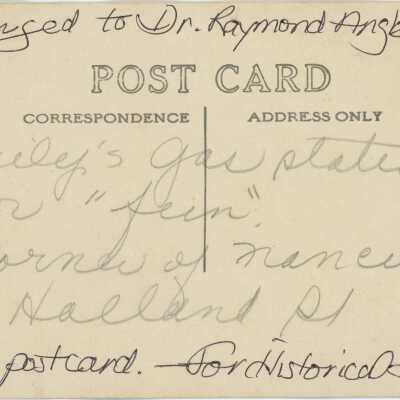 nged to Dr. Raymond Angl
POST CARD
CORRESPONDENCE
ADDRESS ONLY
ily's Gas statio
"fun".
corner of nance
Holland St
postcard. — For Historical S